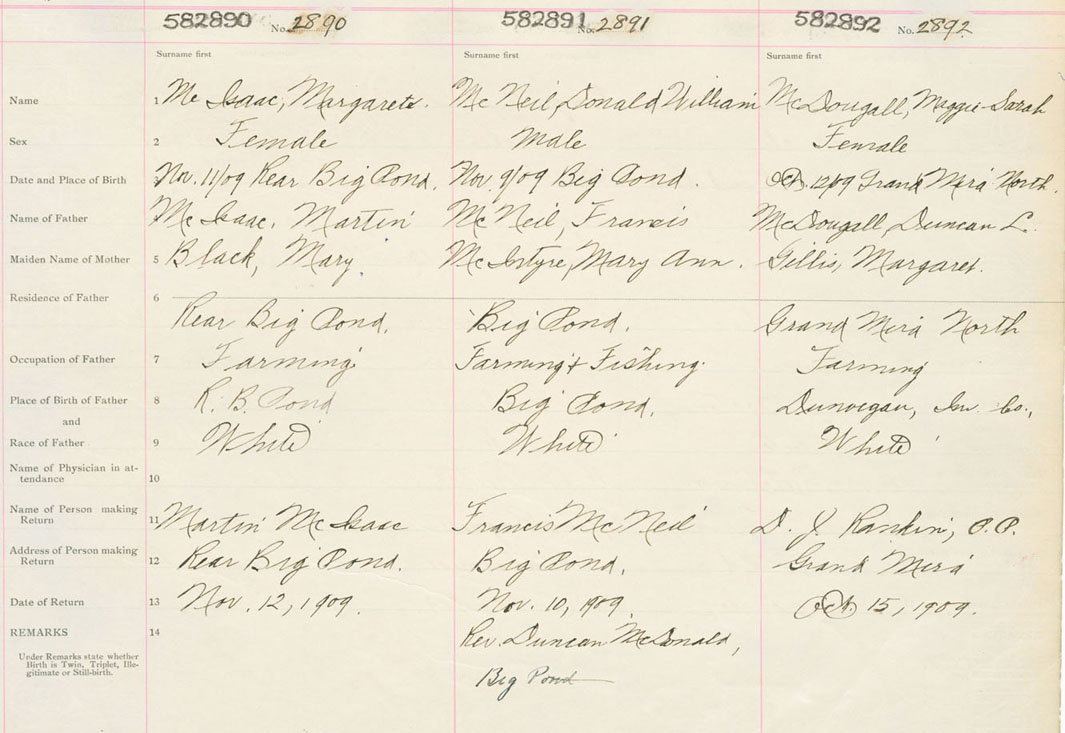 582890 No. 2890 582891 No. 2891 582892 No. 2892
Surname first Surname first Surname first
Name 1 Mc Isaac, Margarets. Mc Neil, Donald William McDougall, Maggie Sarah
Sex 2 Female Male Female
Date and Place of Birth 3 Nov. 11/09 Rear Big Pond. Nov. 9/09 Big Pond. Oct. 12/09 Grand Mira North.
Name of Father 4 Mc Isaac, Martin Mc Neil, Francis McDougall, Duncan L.
Maiden Name of Mother 5 Black, Mary McIntyre, Mary Ann. Gillis, Margaret.
Residence of Father 6
Rear Big Pond. Big Pond. Grand Mira North
Occupation of Father 7 Farming Farming & Fishing. Farming
Place of Birth of Father 8 R. B. Pond Big Pond. Dunvegan, Inv. Co.,
and
Race of Father 9 White White White
Name of Physician in at-
tendance 10
Name of Person making
Return 11 Martin Mc Isaac Francis McNeil D. J. Rankin, P.P.
Address of Person making
Return 12 Rear Big Pond. Big Pond. Grand Mira
Date of Return 13 Nov. 12, 1909. Nov. 10, 1909. Oct. 15, 1909.
REMARKS 14 Rev. Duncan McDonald,
Under Remarks state whether
Birth is Twin, Triplet, Ille-
gitimate or Still-birth.
Big Pond